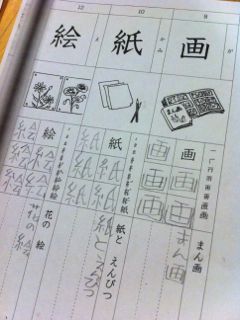 8
が
画
一 画 画
まん画
画 画 画 画 画 画
まん画
10
かみ
紙
紙
紙と えんぴつ
紙 紙 紙 紙 紙
紙とえんぴつ
12
え
絵
絵
花の 絵
絵 絵 絵 絵 絵
花の絵